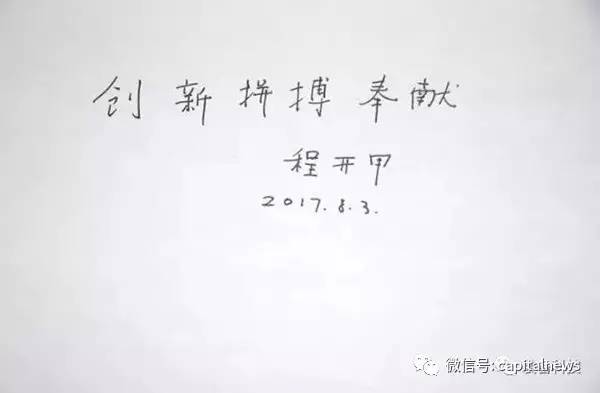 创新拼搏奉献
程开甲
2017.8.3.
微信号: capitalnews